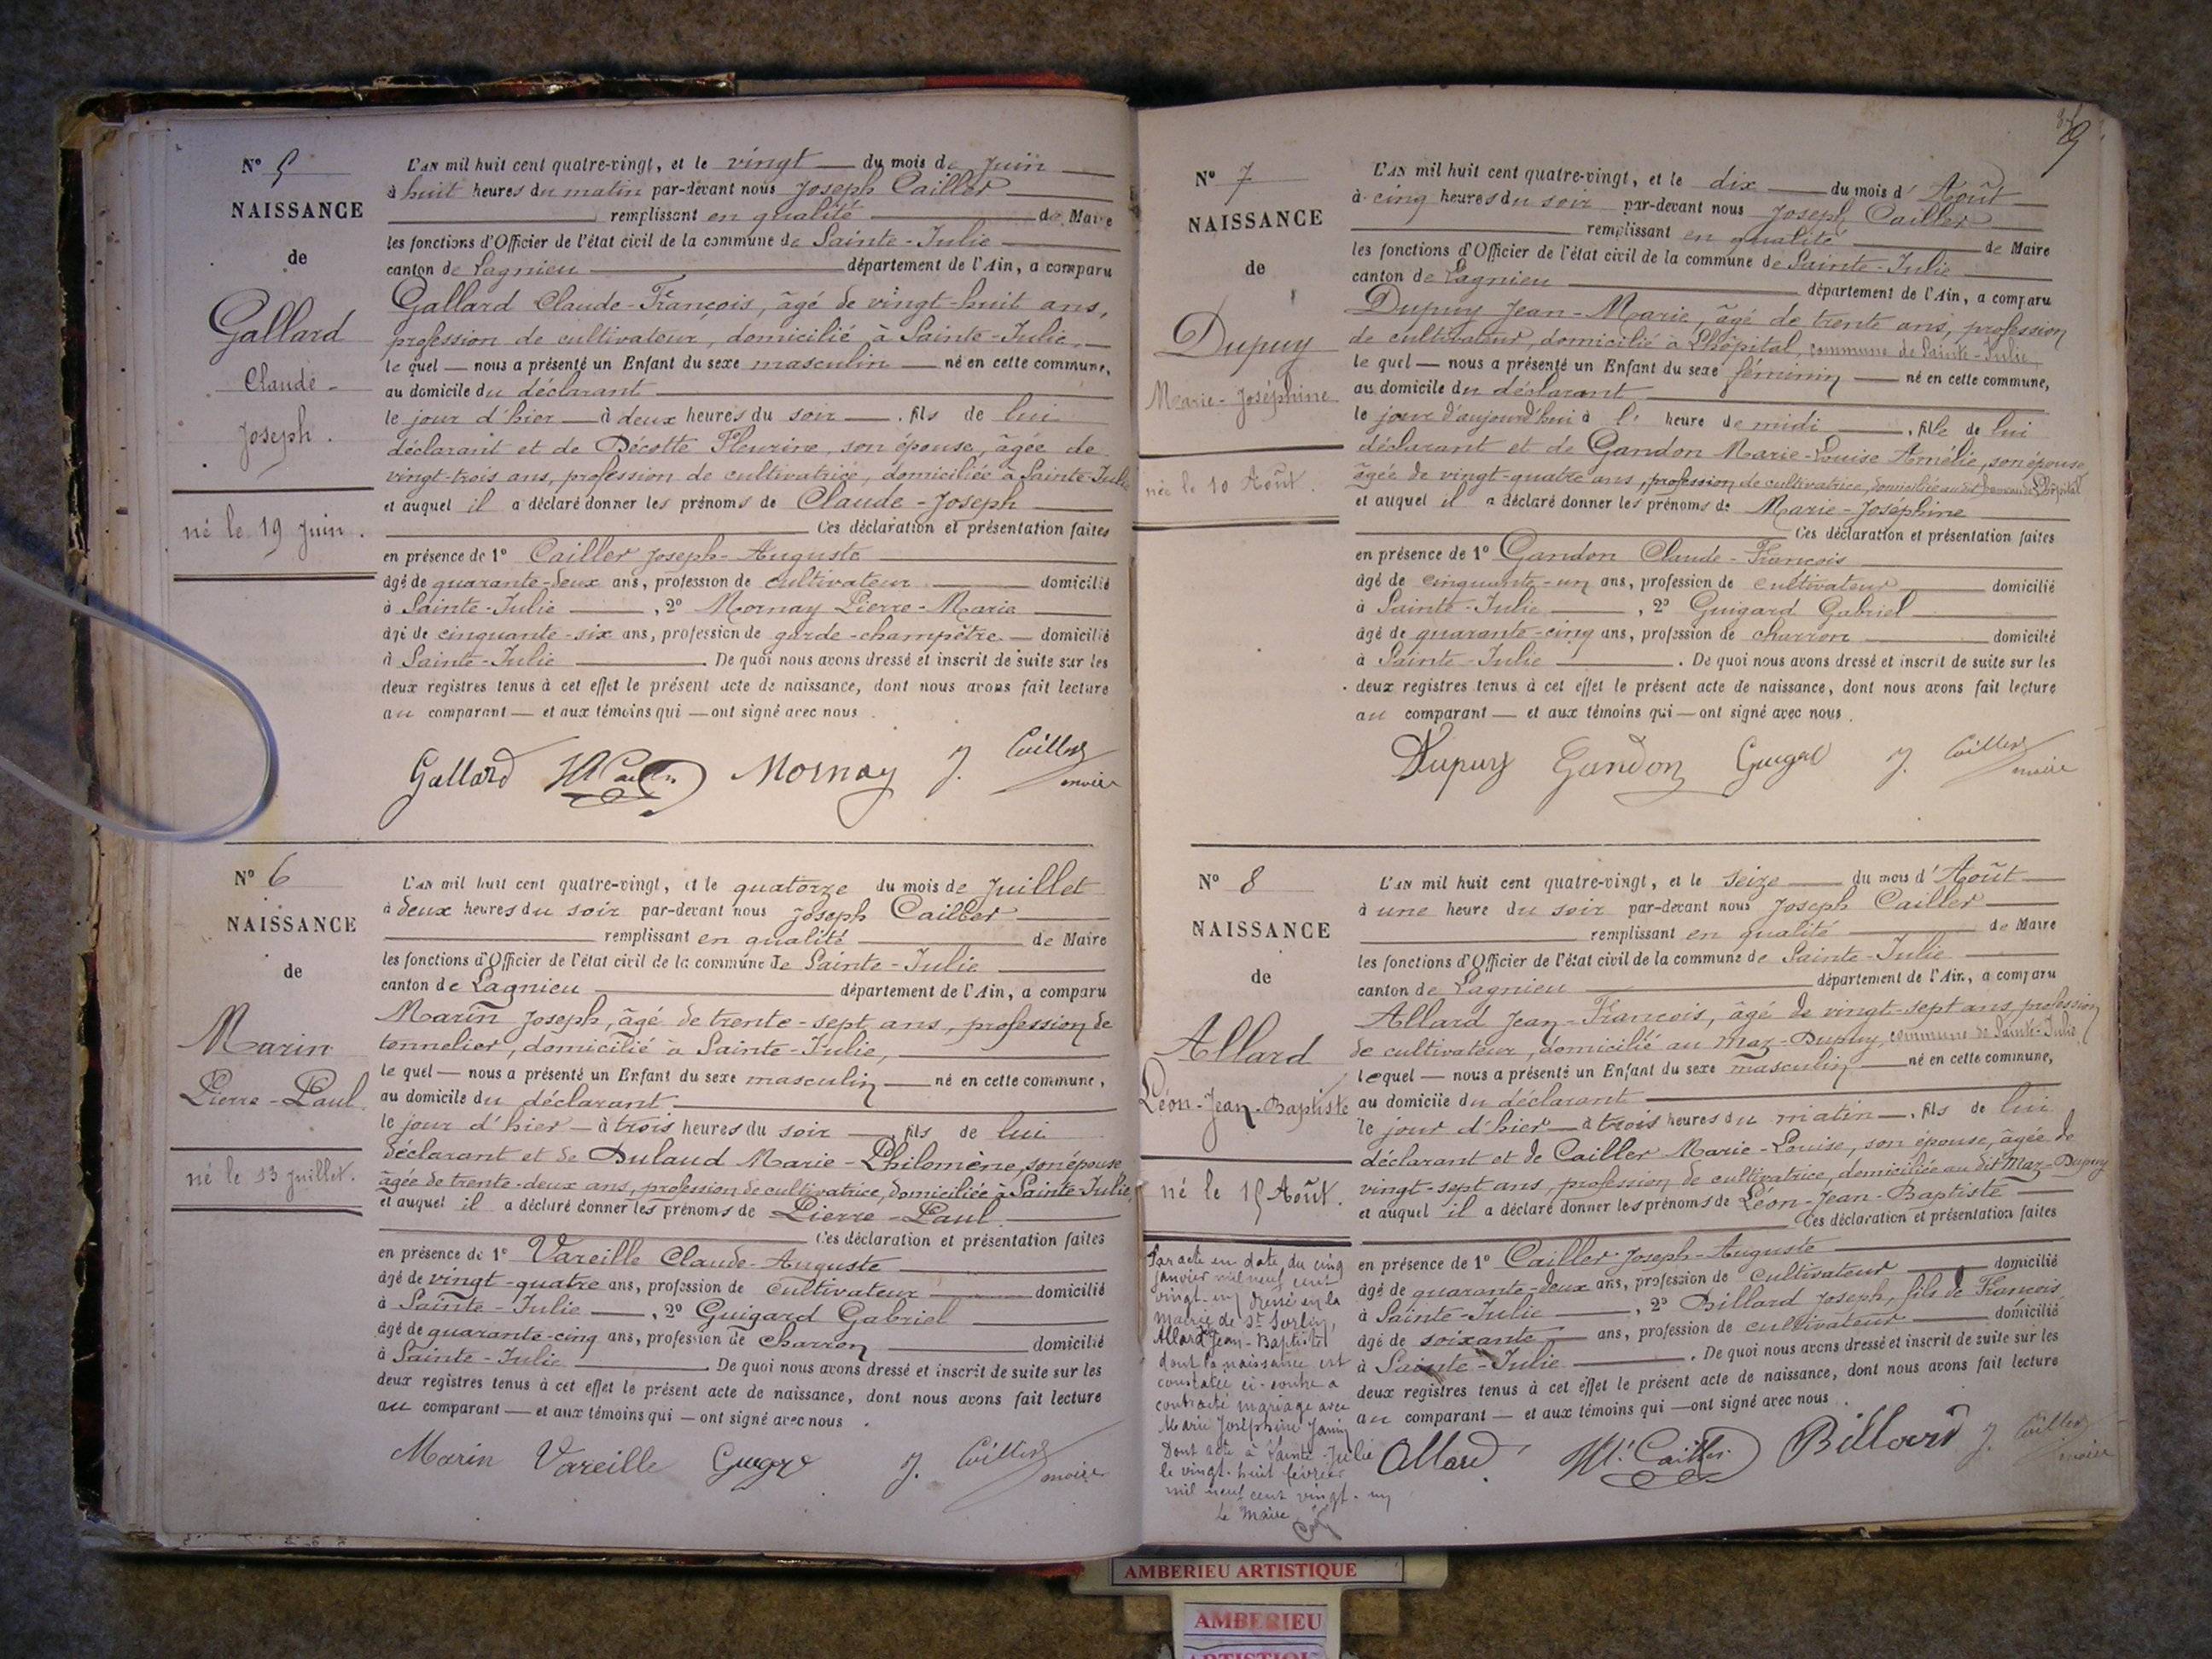 N° 5
NAISSANCE
de
Gallard
Claude-
Joseph.
né le 19 Juin.
L'AN mil huit cent quatre-vingt, et le vingt du mois de Juin
à huit heures du matin par-devant nous Joseph Cailler
remplissant en qualité de Maire
les fonctions d'Officier de l'état civil de la commune de Sainte-Julie
canton de Lagnieu département de l'Ain, a comparu
Gallard Claude-François, âgé de vingt-huit ans,
profession de cultivateur, domicilié à Sainte-Julie,
le quel — nous a présenté un Enfant du sexe masculin — né en cette commune,
au domicile du déclarant
le jour d'hier — à deux heures du soir —, fils de lui
déclarant et de Décotte Fleurine, son épouse, âgée de
vingt-trois ans, profession de cultivatrice, domiciliée à Sainte-Julie
et auquel il a déclaré donner les prénoms de Claude-Joseph
Ces déclaration et présentation faites
en présence de 1° Cailler Joseph-Auguste
âgé de quarante-deux ans, profession de cultivateur domicilié
à Sainte-Julie, 2° Mornay Pierre-Marie
âgé de cinquante-six ans, profession de garde-champêtre — domicilié
à Sainte-Julie. De quoi nous avons dressé et inscrit de suite sur les
deux registres tenus à cet effet le présent acte de naissance, dont nous avons fait lecture
au comparant — et aux témoins qui — ont signé avec nous.
Gallard Mornay J. Cailler
maire
N° 6
NAISSANCE
de
Marin
Pierre-Paul.
né le 13 Juillet.
L'AN mil huit cent quatre-vingt, et le quatorze du mois de Juillet
à deux heures du soir par-devant nous Joseph Cailler
remplissant en qualité de Maire
les fonctions d'Officier de l'état civil de la commune de Sainte-Julie
canton de Lagnieu département de l'Ain, a comparu
Marin Joseph, âgé de trente-sept ans, profession de
tonnelier, domicilié à Sainte-Julie,
le quel — nous a présenté un Enfant du sexe masculin — né en cette commune,
au domicile du déclarant
le jour d'hier — à trois heures du soir —, fils de lui
déclarant et de Dulaud Marie-Philomène, son épouse,
âgée de trente-deux ans, profession de cultivatrice, domiciliée à Sainte-Julie,
et auquel il a déclaré donner les prénoms de Pierre-Paul
Ces déclaration et présentation faites
en présence de 1° Vareille Claude-Auguste
âgé de vingt-quatre ans, profession de cultivateur domicilié
à Sainte-Julie, 2° Guigard Gabriel
âgé de quarante-cinq ans, profession de charron domicilié
à Sainte-Julie. De quoi nous avons dressé et inscrit de suite sur les
deux registres tenus à cet effet le présent acte de naissance, dont nous avons fait lecture
au comparant — et aux témoins qui — ont signé avec nous.
Marin Vareille J. Cailler
maire
N° 7
NAISSANCE
de
Dupuy
Marie-Joséphine
née le 10 Août.
L'AN mil huit cent quatre-vingt, et le dix du mois d'Août
à cinq heures du soir par-devant nous Joseph Cailler
remplissant en qualité de Maire
les fonctions d'Officier de l'état civil de la commune de Sainte-Julie
canton de Lagnieu département de l'Ain, a comparu
Dupuy Jean-Marie, âgé de trente ans, profession
de cultivateur, domicilié à Lhôpital, commune de Sainte-Julie
le quel — nous a présenté un Enfant du sexe féminin — né en cette commune,
au domicile du déclarant
le jour d'aujourd'hui à l' heure de midi, fille de lui
déclarant et de Gandon Marie-Louise Amélie, son épouse,
âgée de vingt-quatre ans, profession de cultivatrice, domiciliée au dit hameau de Lhôpital
et auquel il a déclaré donner les prénoms de Marie-Joséphine
Ces déclaration et présentation faites
en présence de 1° Gandon Claude-François
âgé de cinquante-un ans, profession de cultivateur domicilié
à Sainte-Julie, 2° Guigard Gabriel
âgé de quarante-cinq ans, profession de charron domicilié
à Sainte-Julie. De quoi nous avons dressé et inscrit de suite sur les
deux registres tenus à cet effet le présent acte de naissance, dont nous avons fait lecture
au comparant — et aux témoins qui — ont signé avec nous.
Dupuy Gandon J. Cailler
maire
N° 8
NAISSANCE
de
Allard
Léon-Jean-Baptiste
né le 15 Août.
Par acte en date du cinq
janvier mil neuf cent
vingt-un dressé en la
mairie de St Sorlin,
Allard Jean-Baptiste
dont la naissance est
constatée ci-contre a
contracté mariage avec
Marie Joséphine Janin
Dont acte à Sainte-Julie
le vingt-huit février
mil neuf cent vingt-un
Le Maire
L'AN mil huit cent quatre-vingt, et le seize du mois d'Août
à une heure du soir par-devant nous Joseph Cailler
remplissant en qualité de Maire
les fonctions d'Officier de l'état civil de la commune de Sainte-Julie
canton de Lagnieu département de l'Ain, a comparu
Allard Jean-François, âgé de vingt-sept ans, profession
de cultivateur, domicilié au Maz-Dupuy, commune de Sainte-Julie,
lequel — nous a présenté un Enfant du sexe masculin — né en cette commune,
au domicile du déclarant
le jour d'hier — à trois heures du matin —, fils de lui
déclarant et de Cailler Marie-Louise, son épouse, âgée de
vingt-sept ans, profession de cultivatrice, domiciliée au dit Maz-Dupuy
et auquel il a déclaré donner les prénoms de Léon-Jean-Baptiste
Ces déclaration et présentation faites
en présence de 1° Cailler Joseph-Auguste
âgé de quarante-deux ans, profession de cultivateur domicilié
à Sainte-Julie, 2° Billard Joseph, fils de François,
âgé de soixante ans, profession de cultivateur domicilié
à Sainte-Julie. De quoi nous avons dressé et inscrit de suite sur les
deux registres tenus à cet effet le présent acte de naissance, dont nous avons fait lecture
au comparant — et aux témoins qui — ont signé avec nous.
Allard Billard J. Cailler
maire
AMBERIEU ARTISTIQUE
AMBERIEU
ARTISTIQUE